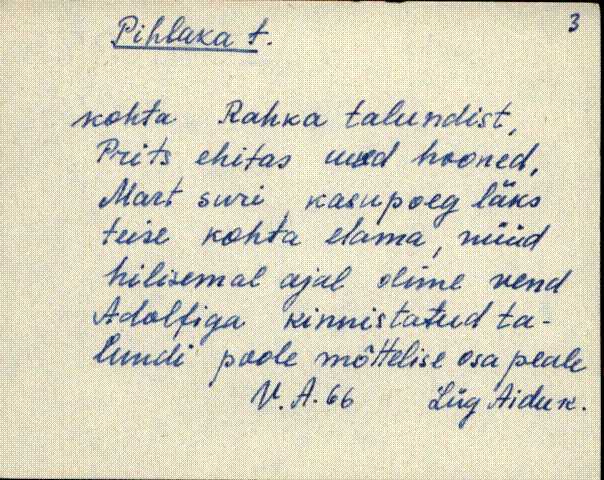 3
Pihlaka t.
kohta Rahka talundist,
Prits ehitas uued hooned,
Mart suri kasupoeg läks
teise kohta elama, nüüd
hilisemal ajal olime vend
Adolfiga kinnistatud ta-
lundi poole mõttelise osa peale
V. A. 66 Lüg Aiduk.